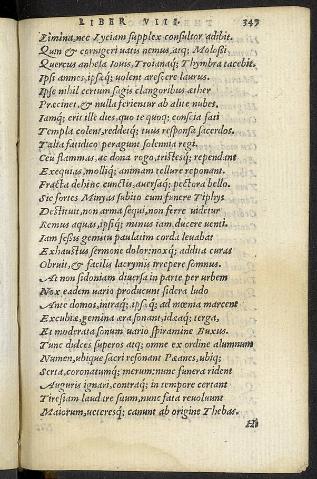 LIBER VIII. 349
Limina, nec Lyciam supplex consultor adibit.
Quin & cornigeri vatis nemus, atq; Molossi,
Quercus anhela Iouis, Troianaq; Thymbra tacebit.
Ipsi amnes, ipsæq; uolent arescere laurus.
Ipse nihil certum sagis clangoribus æther
Præcinet, & nulla ferientur ab alite nubes.
Iamq; erit ille dies, quo te quoq; conscia fati
Templa colent, reddetq; tuus responsa sacerdos.
Talia fatidico peragunt solemnia regi.
Ceu flammas, ac dona rogo, tristesq; rependant
Exequias, molliq; animam tellure reponant.
Fracta dehinc cunctis, auersaq; pectora bello.
Sic fortes Minyas subito cum funere Tiphys
Destituit, non arma sequi, non ferre uidetur
Remus aquas, ipsiq; minus iam ducere uenti.
Iam fessis gemitu paulatim corda leuabat
Exhaustus sermone dolor: noxq; addita curas
Obruit, & facilis lacrymis irrepere somnus.
At non sidoniam diuersa in parte per urbem
Nox eadem vario producunt sidera ludo
Ante domos, intraq; ipsæq; ad mœnia marcent
Excubiæ, gemina æra sonant, idæaq; terga,
Et moderata sonum uario spiramine Buxus.
Tunc dulces superos atq; omne ex ordine alumnum
Numen, ubique sacri resonant Pæanes, ubiq;
Serta, coronatumq; merum: nunc funera rident
Auguris ignari, contraq; in tempore certant
Tiresiam laudare suum, nunc fata reuoluunt
Maiorum, ueteresq; canunt ab origine Thebas.
Hi